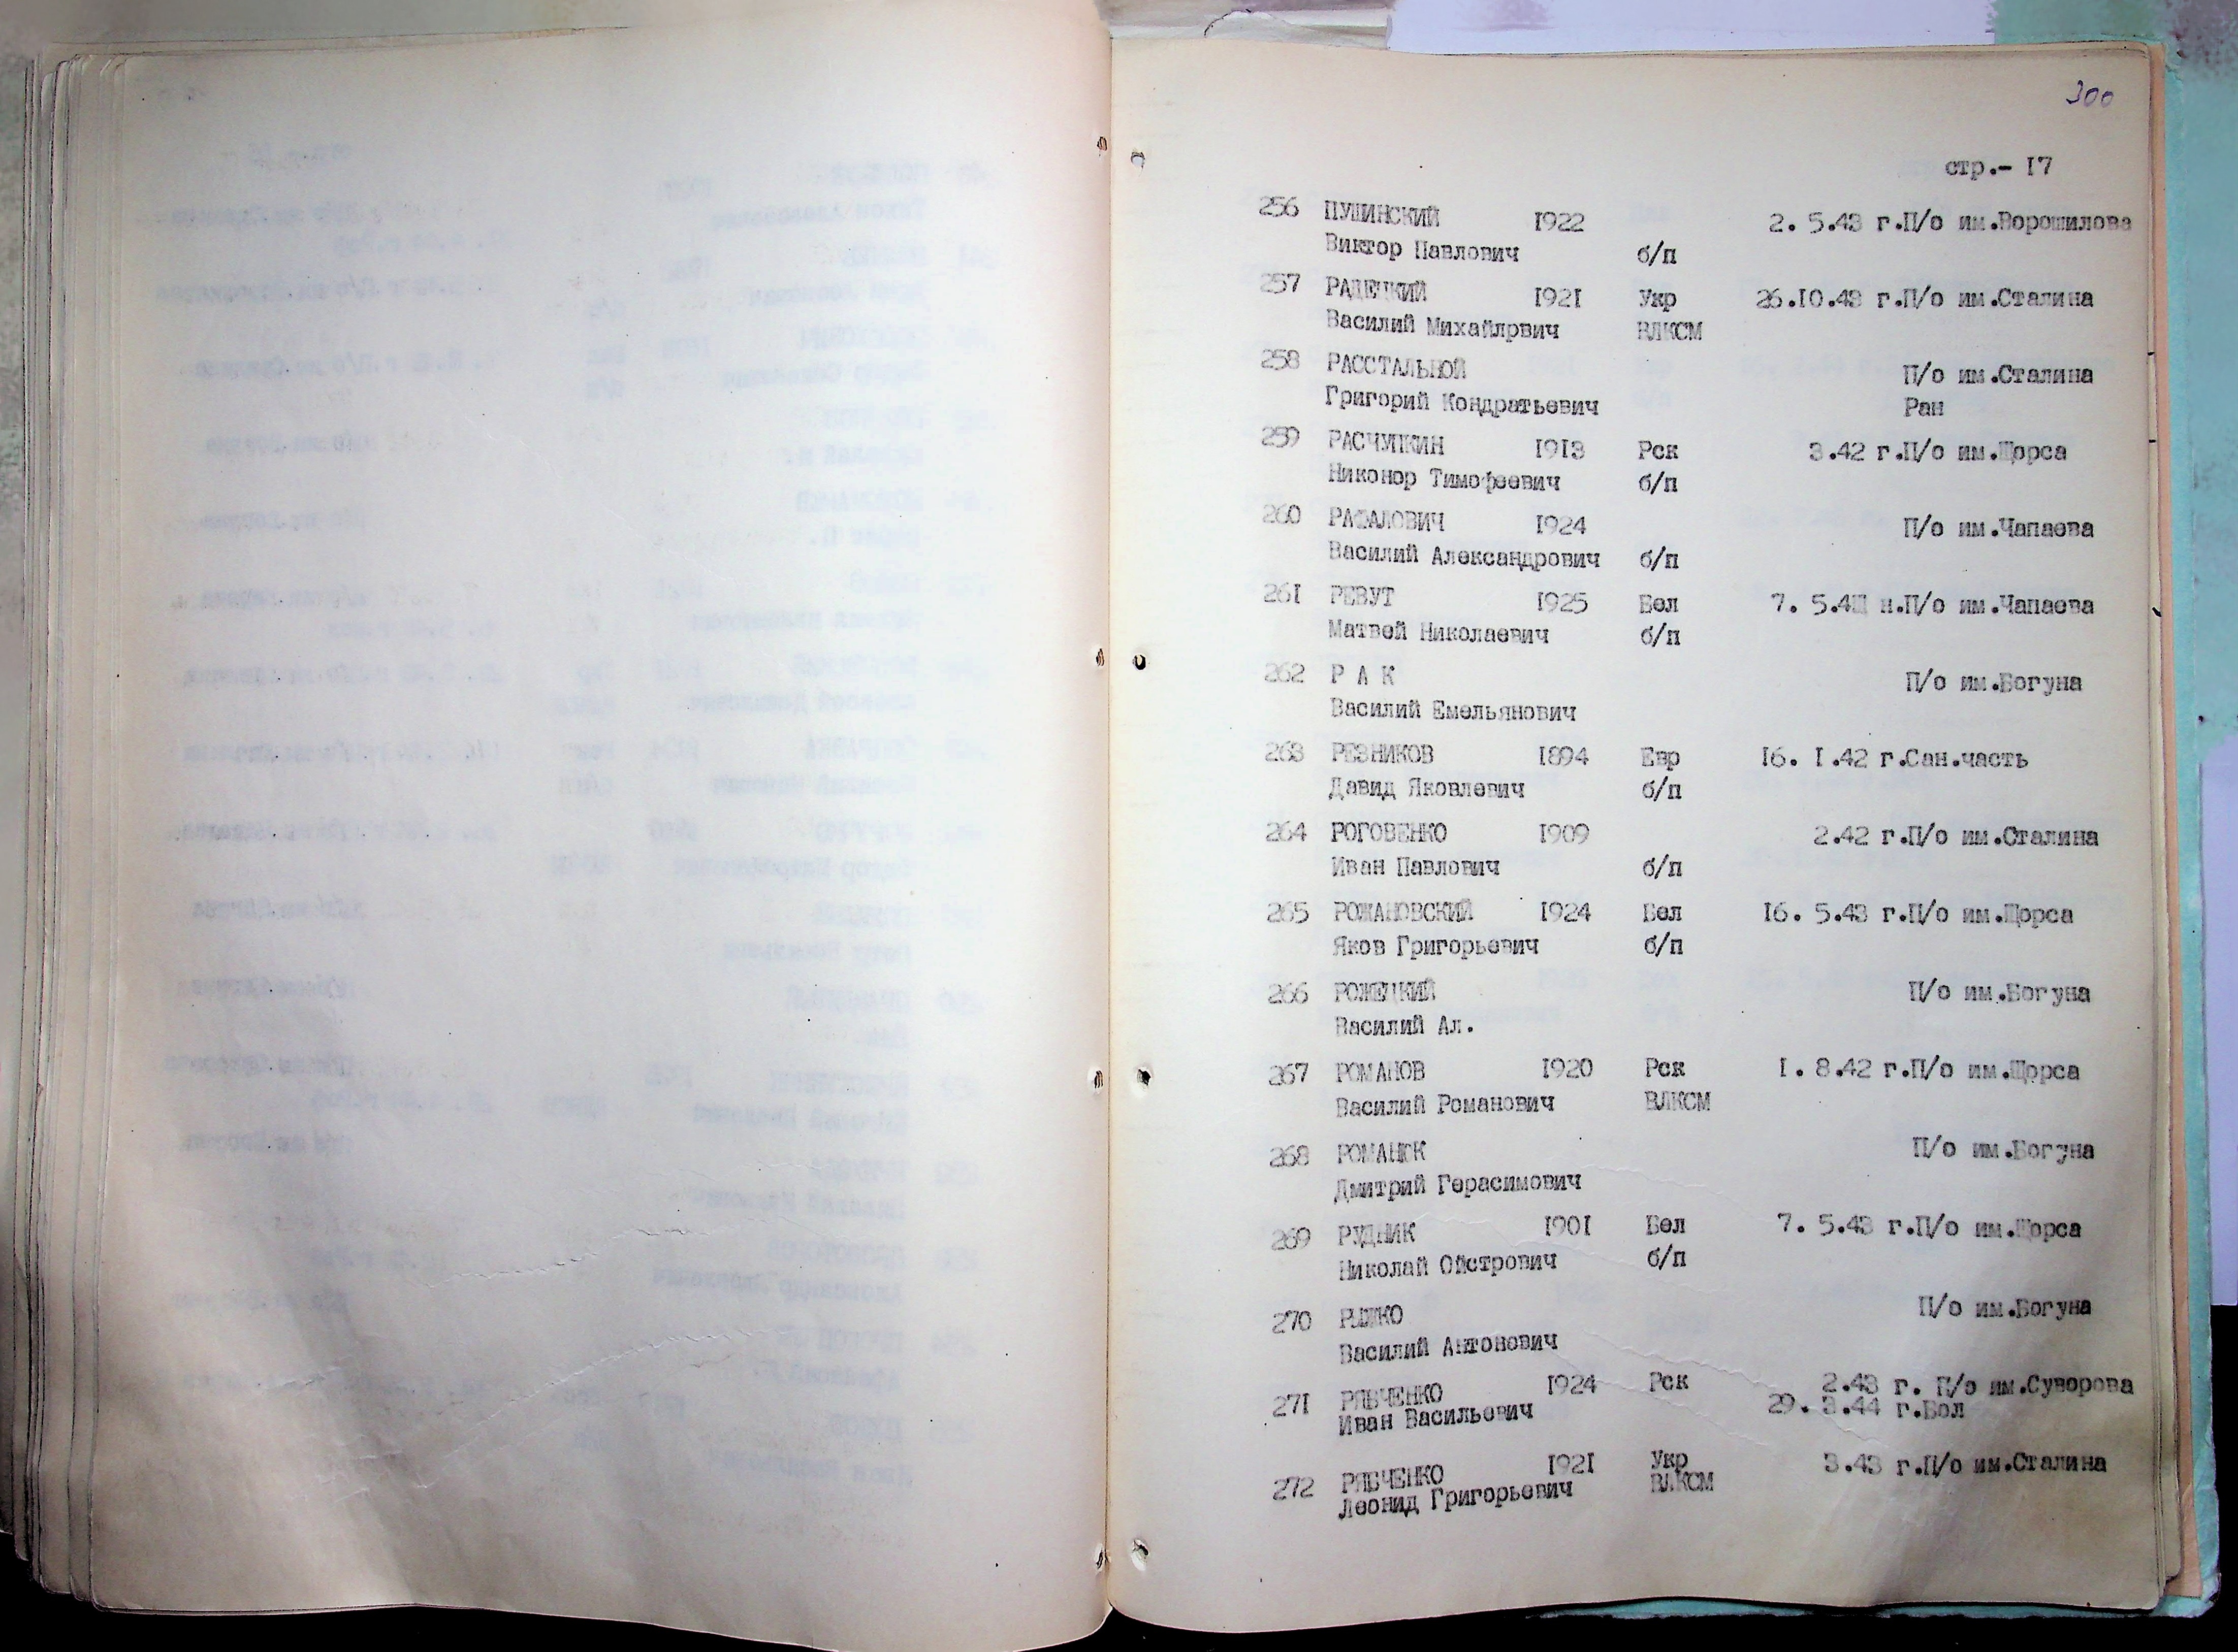 300
стр.- 17
256 ПУШИНСКИЙ 1922 2. 5.43 г.П/о им.Ворошилова
Виктор Павлович б/п
257 РАДЕЦКИЙ 1921 Укр 26.10.43 г.П/о им.Сталина
Василий Михайлрвич ВЛКСМ
258 РАССТАЛЬНОЙ П/о им.Сталина
Григорий Кондратьевич Ран
259 РАСЧУПКИН 1913 Рск 3.42 г.П/о им.Щорса
Никонор Тимофеевич б/п
260 РАФАЛОВИЧ 1924 П/о им.Чапаева
Василий Александрович б/п
261 РЕВУТ 1925 Бел 7. 5.4Ш н.П/о им.Чапаева
Матвей Николаевич б/п
262 Р А К П/о им.Богуна
Василий Емельянович
263 РЕЗНИКОВ 1894 Евр 16. 1.42 г.Сан.часть
Давид Яковлевич б/п
264 РОГОВЕНКО 1909 2.42 г.П/о им.Сталина
Иван Павлович б/п
265 РОЖАНОВСКИЙ 1924 Бел 16. 5.43 г.П/о им.Щорса
Яков Григорьевич б/п
266 РОЖЕЦКИЙ П/о им.Богуна
Василий Ал.
267 РОМАНОВ 1920 Рск 1. 8.42 г.П/о им.Щорса
Василий Романович ВЛКСМ
268 РОМАНЮК П/о им.Богуна
Дмитрий Герасимович
269 РУДНИК 1901 Бел 7. 5.43 г.П/о им.Щорса
Николай Ойстрович б/п
270 П/о им.Богуна
Василий Антонович
271 РЯБЧЕНКО 1924 Рск 2.43 г. П/о им.Суворова
Иван Васильевич 29. 3.44 г.Бол
272 РЯБЧЕНКО 1921 Укр 3.43 г.П/о им.Сталина
Леонид Григорьевич ВЛКСМ